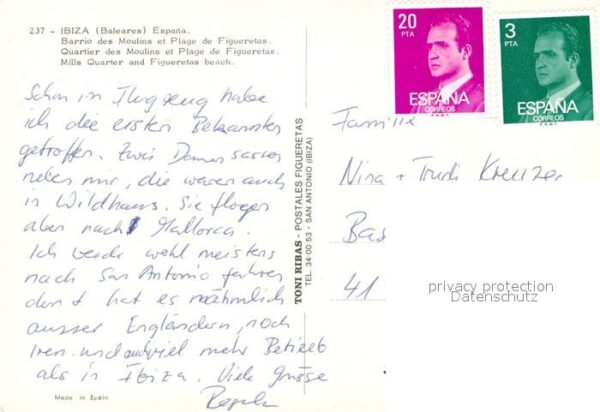 237 - IBIZA (Baleares) España.
Barrio des Moulins et Plage de Figueretas.
Quartier des Moulins et Plage de Figueretas.
Mills Quarter and Figueretas beach.
Schon im Flugzeug habe
ich die ersten Bekannten
getroffen. Zwei Damen sassen
neben mir, die waren auch
in Wildhaus. Sie flogen
aber nach Mallorca.
Ich werde wohl meistens
nach San Antonio fahren
dort hat es nähmlich
ausser Engländern, noch
Iren und auch viel mehr Betrieb
als in Ibiza. Viele Grüsse
Made in Spain
TONI RIBAS - POSTALES FIGUERETAS
TEL. 34 00 53 - SAN ANTONIO (IBIZA)
20
PTA
ESPAÑA
CORREOS
F.N.M.T.
3
PTA
ESPAÑA
CORREOS
F.N.M.T.
Familie
Nina + Trudi Kreuzer
Bas
41
privacy protection
Datenschutz